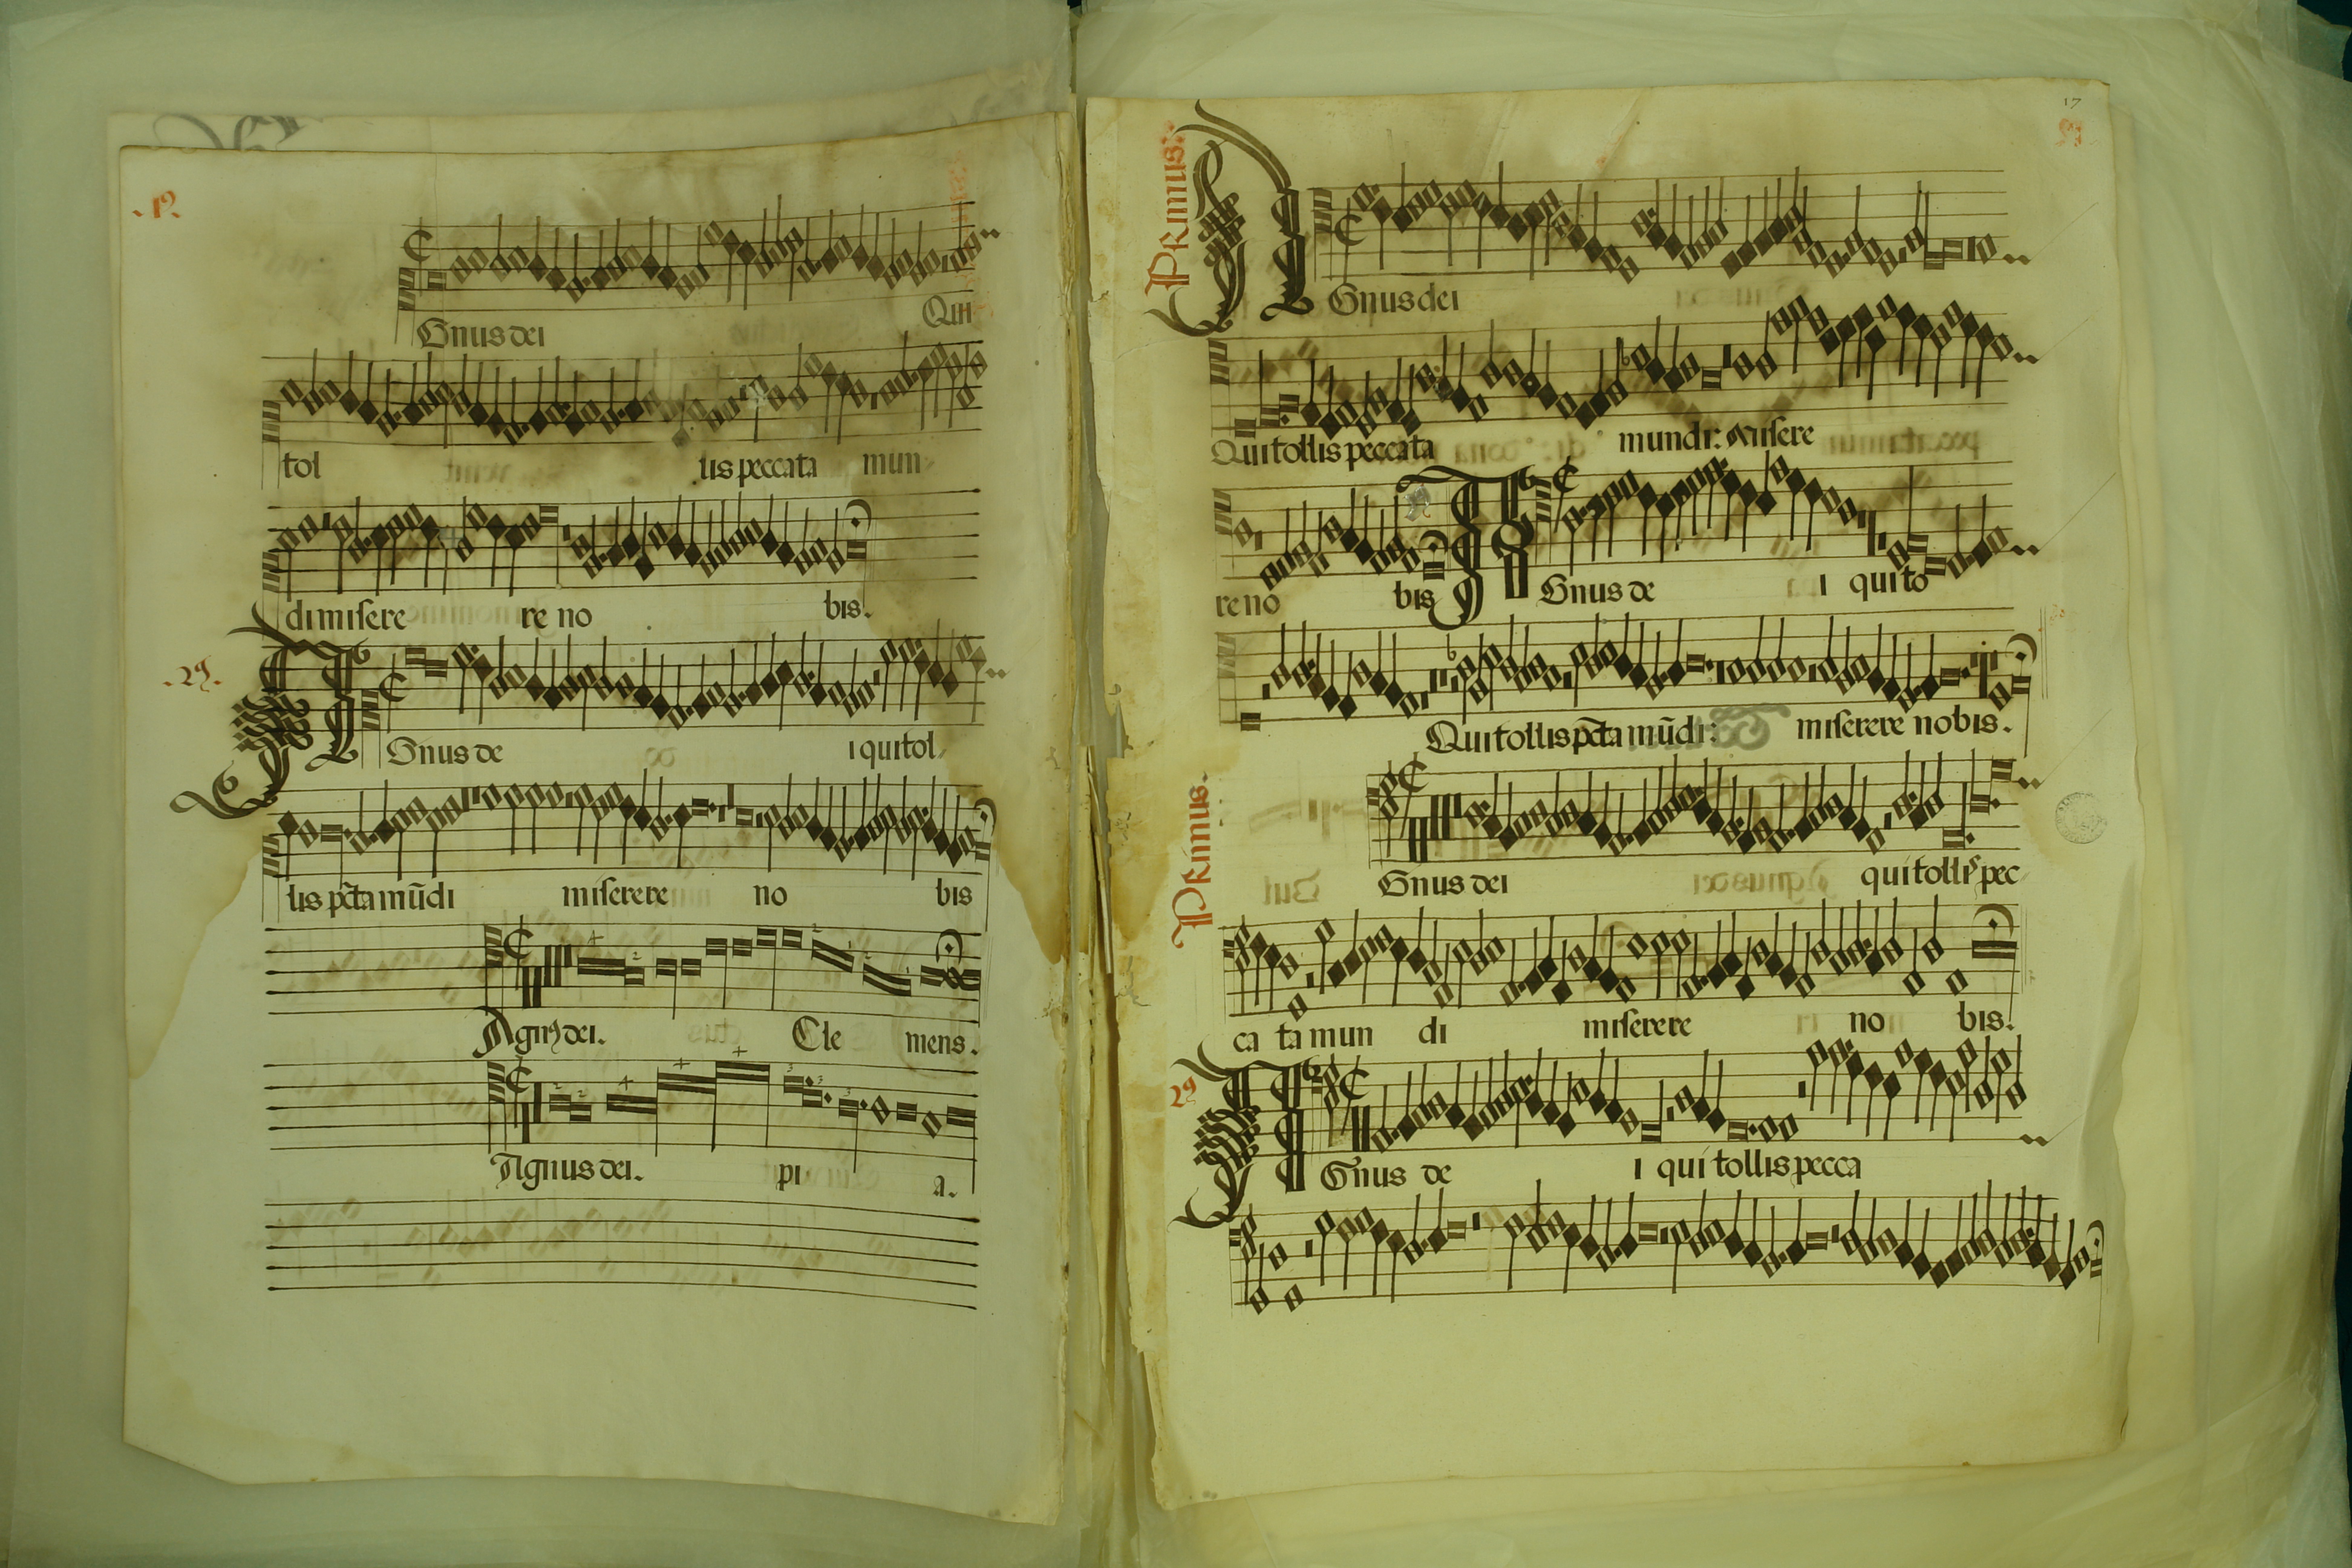 .1º.
Gnus dei Qui
tol lis peccata mun
di misere re no bis.
.2º.
Gnus de i qui tol
lis pc̄ta mūdi miserere no bis
Agnꝰ dei. Cle mens.
Agnus dei. pi a.
17
Primus:
Gnus dei
Qui tollis peccata mundi: Misere
re no bis Gnus de i qui to
Qui tollis pc̄ta mūdi: miserere nobis.
Primus.
Gnus dei qui tollis pec
ca ta mun di miserere no bis.
2º
Gnus de i qui tollis pecca